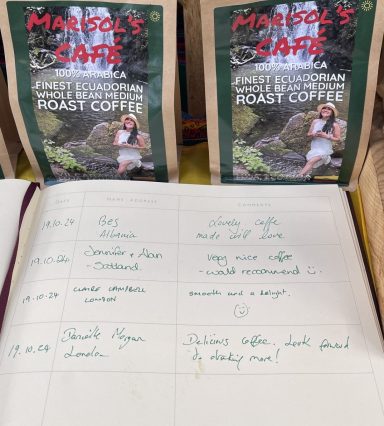 MARISOL'S
CAFÉ
100% ARABICA
FINEST ECUADORIAN
WHOLE BEAN MEDIUM
ROAST COFFEE
MARISOL'S
CAFÉ
100% ARABICA
FINEST ECUADORIAN
WHOLE BEAN MEDIUM
ROAST COFFEE
DATE NAME ADDRESS COMMENTS
19.10.24 Bes Lovely caffe
Albania made will love
19.10.24 Jennifer + Alan Very nice coffee
- Scotland - would recommend
19.10.24 CLAIRE CAMPBELL Smooth and a delight.
LONDON
19.10.24 Danielle Morgan Delicious Coffee. Look forward
London to drinking more!